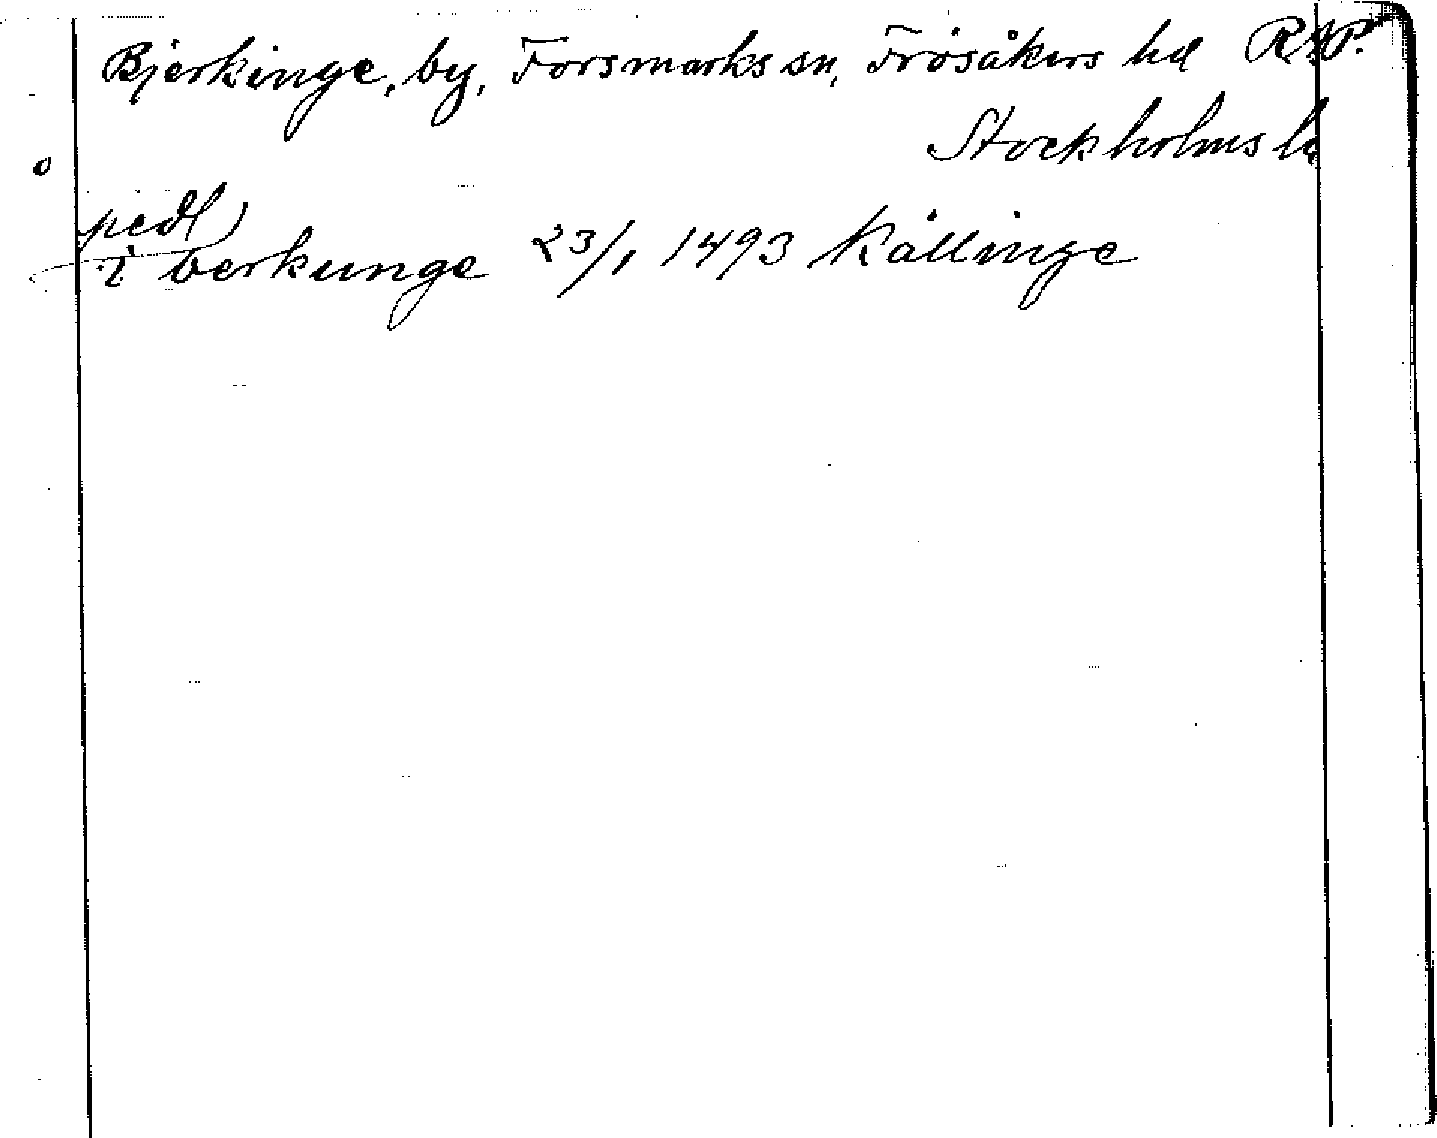 Bjerkinge, by, Forsmarks sn, Frösåkers hd RAP.
Stockholms l
pedl)
i berkunge 23/1 1493 Källinge